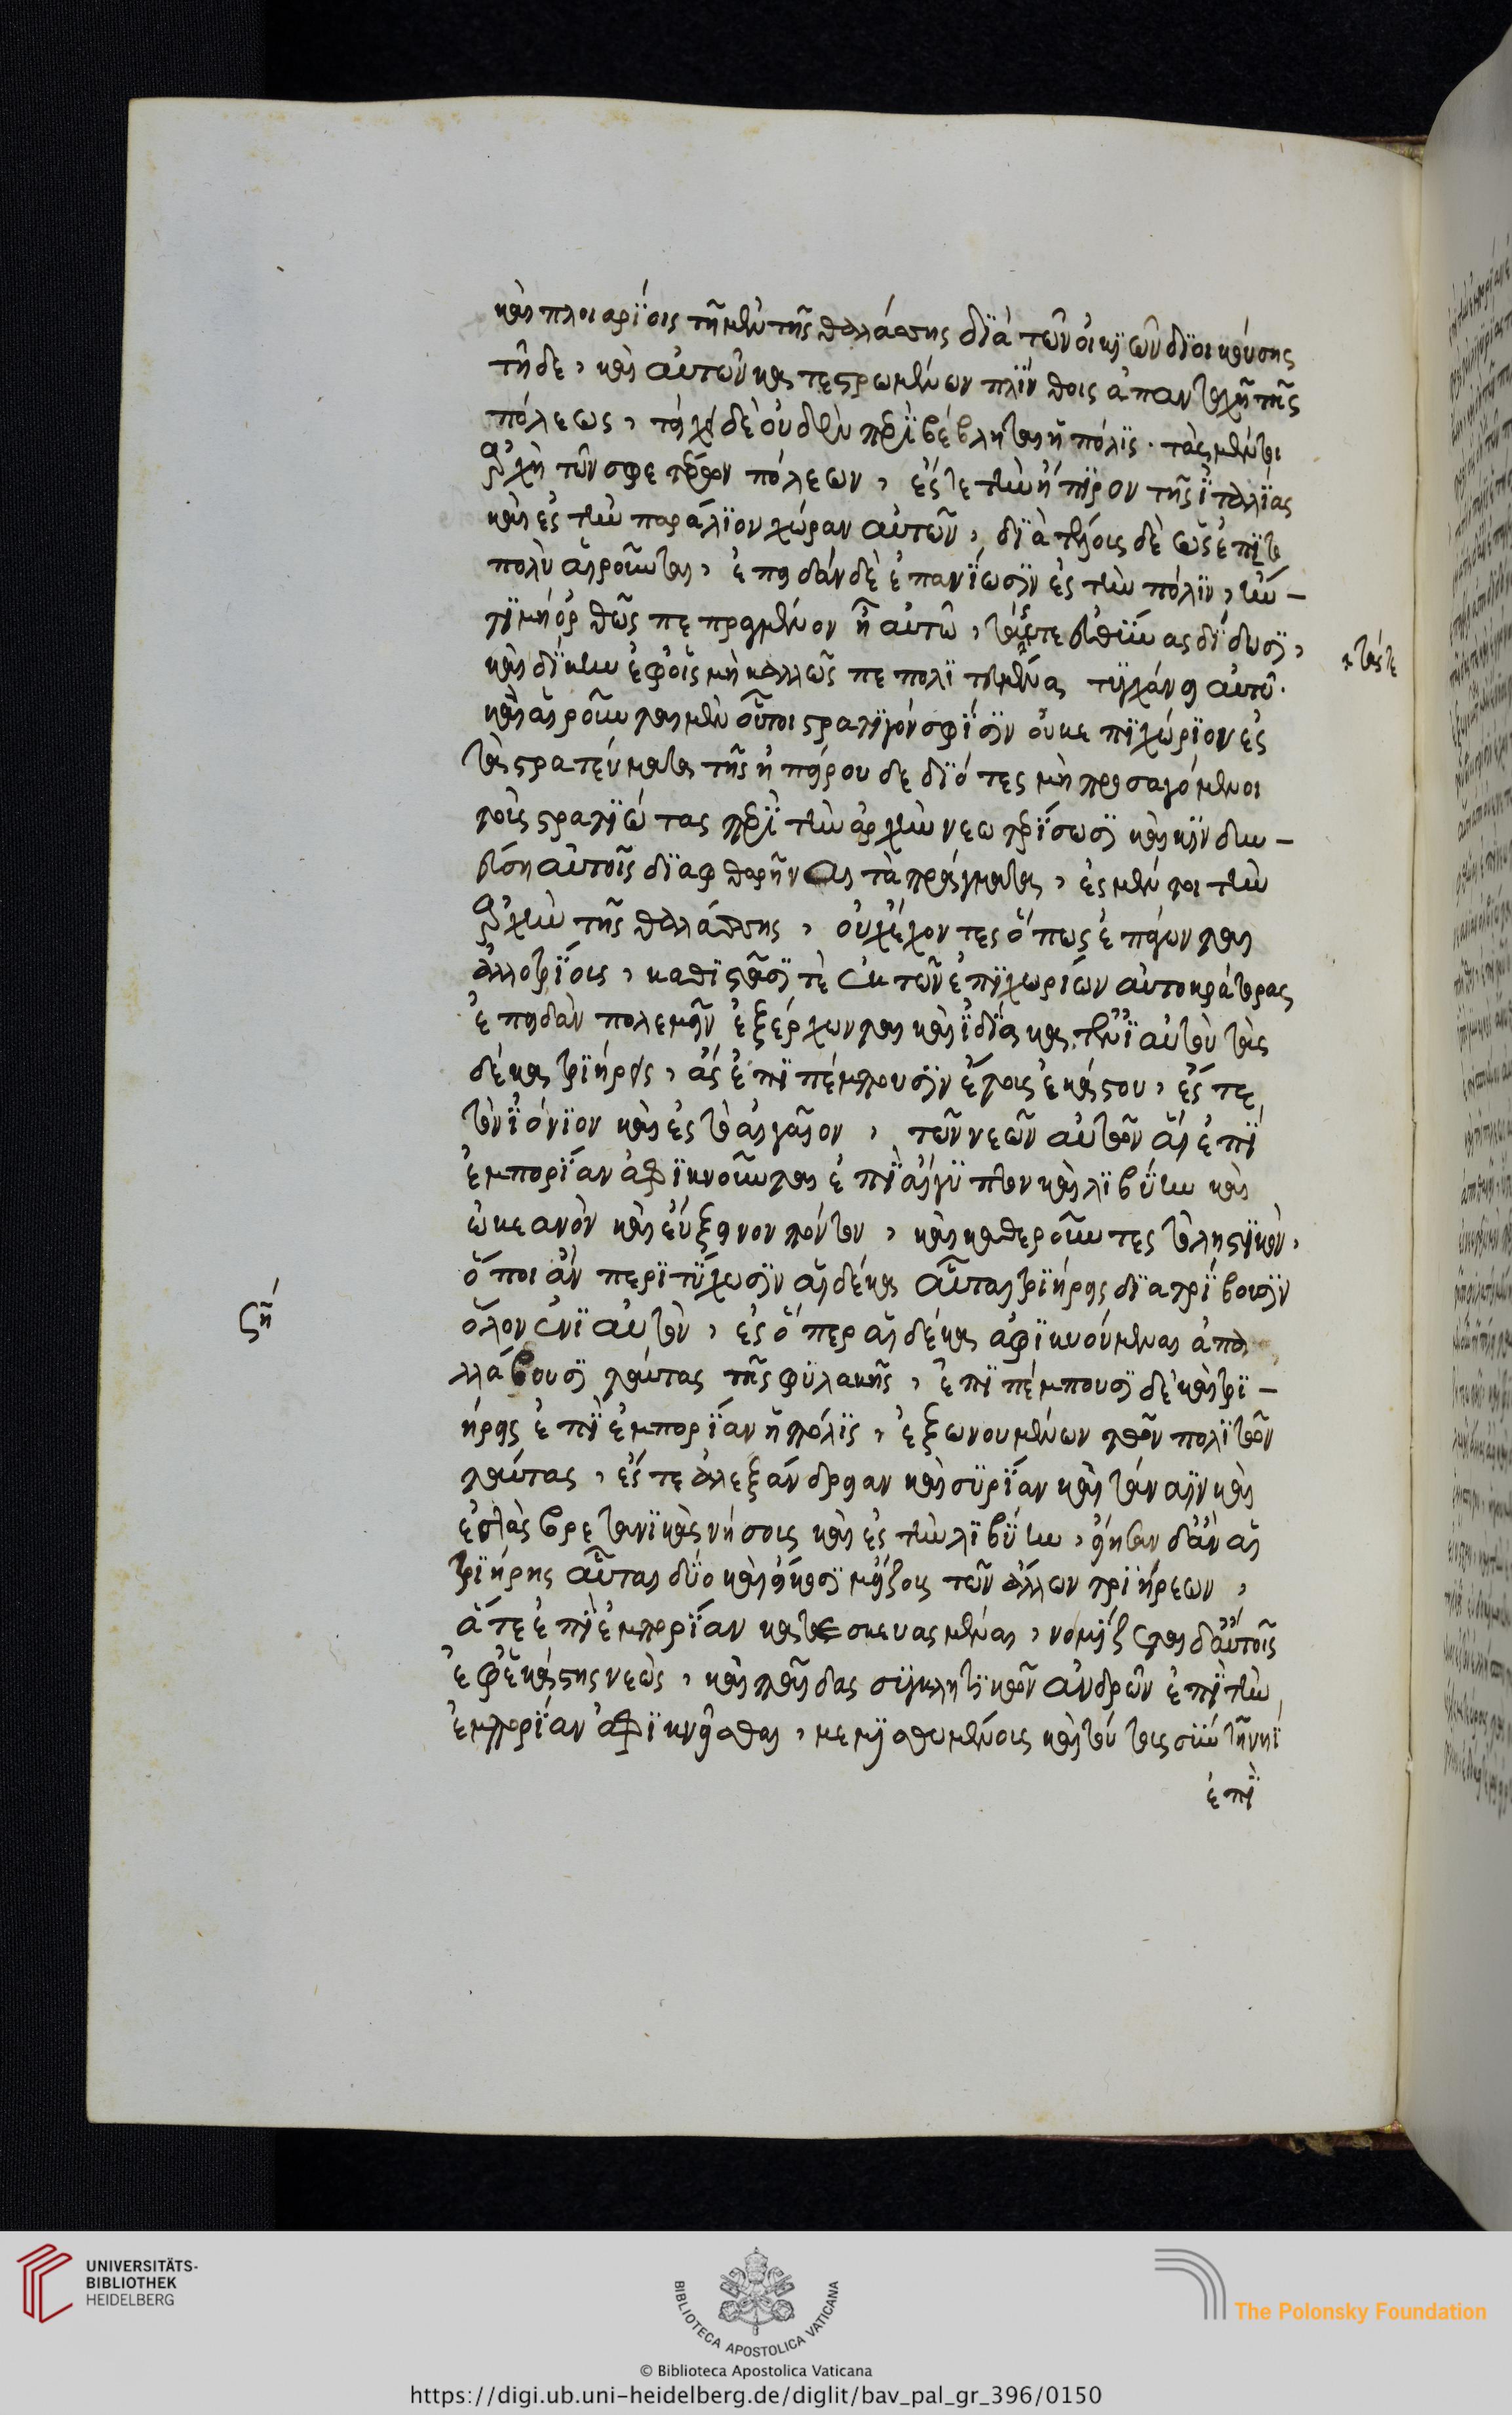 καὶ πλοιαρίοις τῆ μὲν τῆς θαλάσσης διὰ τῶν οἰκιῶν διοικούσης
τῆδε, καὶ αὐτῶν κατεστρωμένων πλίνθοις ἁπανταχῆ τῆς
πόλεως, τείχει δὲ οὐδενὶ περιβέβληται ἡ πόλις. τὰς μέντοι
ἀρχὰς τῶν σφετέρων πόλεων, ἔς τε τὴν ἤπειρον τῆς ἰταλίας
καὶ ἐς τὴν παράλιον χώραν αὐτῶν, δι' ἔτους δὲ ὡς ἐπιτο
πολὺ αἱροῦνται, ἐπειδὰν δὲ ἐπανίωσιν ἐς τὴν πόλιν, ἤν
τι μὴ ὀρθῶς πεπραγμένον ἦ αὐτῶ, ταύτη τε εὐθύνας δίδωσι,
τάς τε
καὶ δίκην ἐφ' οἷς μὴ καλῶς πεπολιτευμένας τυγχάνει αὐτῶ.
καὶ αἱροῦνται μὲν οὗτοι στρατηγόν σφίσιν οὐκ ἐπιχώριον ἐς
τὰ στρατεύματα τῆς ἠπείρου δεδιότες μὴ προσαγόμενοι
τοὺς στρατιώτας περὶ τὴν ἀρχὴν νεωτερίσωσι καὶ κινδυ-
νεύση αὐτοῖς διαφθαρῆναι τὰ πράγματα, ἐς μέντοι τὴν
ἀρχὴν τῆς θαλάσσης, οὐκ ἔχοντες ὅπως ἐπάγωνται
ἀλλοτρίους, καθιστᾶσί τε ἐκ τῶν ἐπιχωρίων αὐτοκράτορας
ἐπειδὰν πολεμεῖν ἐξέρχωνται καὶ ἰδία κατ' ἐνιαυτὸν τὰς
δέκα τριήρεις, ἃς ἐπιπέμπουσιν ἔτους ἑκάστου, ἔς τε
τὸν ἰόνιον καὶ ἐς τὸ αἰγαῖον, τῶν νεῶν αὐτῶν αἳ ἐπὶ
ἐμπορίαν ἀφικνοῦνται ἐπὶ αἴγυπτον καὶ λιβύην καὶ
ὠκεανὸν καὶ εὔξεινον πόντον, καὶ καθαιροῦντες τὸ ληστικὸν,
ὅποι ἂν περιτύχωσιν αἱ δέκα αὗται τριήρεις διατρίβουσιν
ὅλον ἐνιαυτὸν, ἐς ὅπερ αἱ δέκα ἀφικνούμεναι ἀπα
λλάττουσι ταύτας τῆς φυλακῆς, ἐπιπέμπουσι δὲ καὶ τρι-
ήρεις ἐπὶ ἐμπορίαν ἡ πόλις, ἐξωνουμένων τῶν πολιτῶν
ταύτας, ἔς τε ἀλεξάνδρειαν καὶ συρίαν καὶ τάναϊν καὶ
ἐς τὰς βρετανικὰς νήσους καὶ ἐς τὴν λιβύην, εἴησαν δ' ἂν αἱ
τριήρης αὗται δύο καὶ εἴκοσι μείζους τῶν ἄλλων τριήρεων,
ἅτε ἐπὶ ἐμπορίαν κατεσκευασμέναι, νομίζεται δ' αὐτοῖς
ἐφ' ἑκάστης νεὼς, καὶ παῖδας συγκλητικῶν ἀνδρῶν ἐπὶ τὴν
ἐμπορίαν ἀφικνεῖσθαι, μεμισθωμένους καὶ τούτους σὺν τῆ νηὶ
ἐπὶ
ση
UNIVERSITÄTS-
BIBLIOTHEK
HEIDELBERG
BIBLIOTECA APOSTOLICA VATICANA
The Polonsky Foundation
© Biblioteca Apostolica Vaticana
https://digi.ub.uni-heidelberg.de/diglit/bav_pal_gr_396/0150